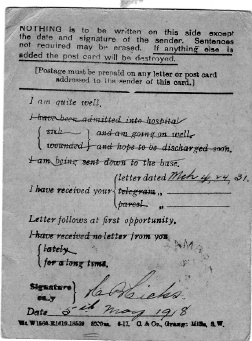 NOTHING is to be written on this side except
the date and signature of the sender. Sentences
not required may be erased. If anything else is
added the post card will be destroyed.
[Postage must be prepaid on any letter or post card
addressed to the sender of this card.]
I am quite well.
I have been admitted into hospital
sick and am going on well.
wounded and hope to be discharged soon.
I am being sent down to the base.
letter dated Mch 4, 24, 31.
I have received your telegram „
parcel „
Letter follows at first opportunity.
I have received no letter from you
lately
for a long time.
Signature
only
Date 5th May 1918